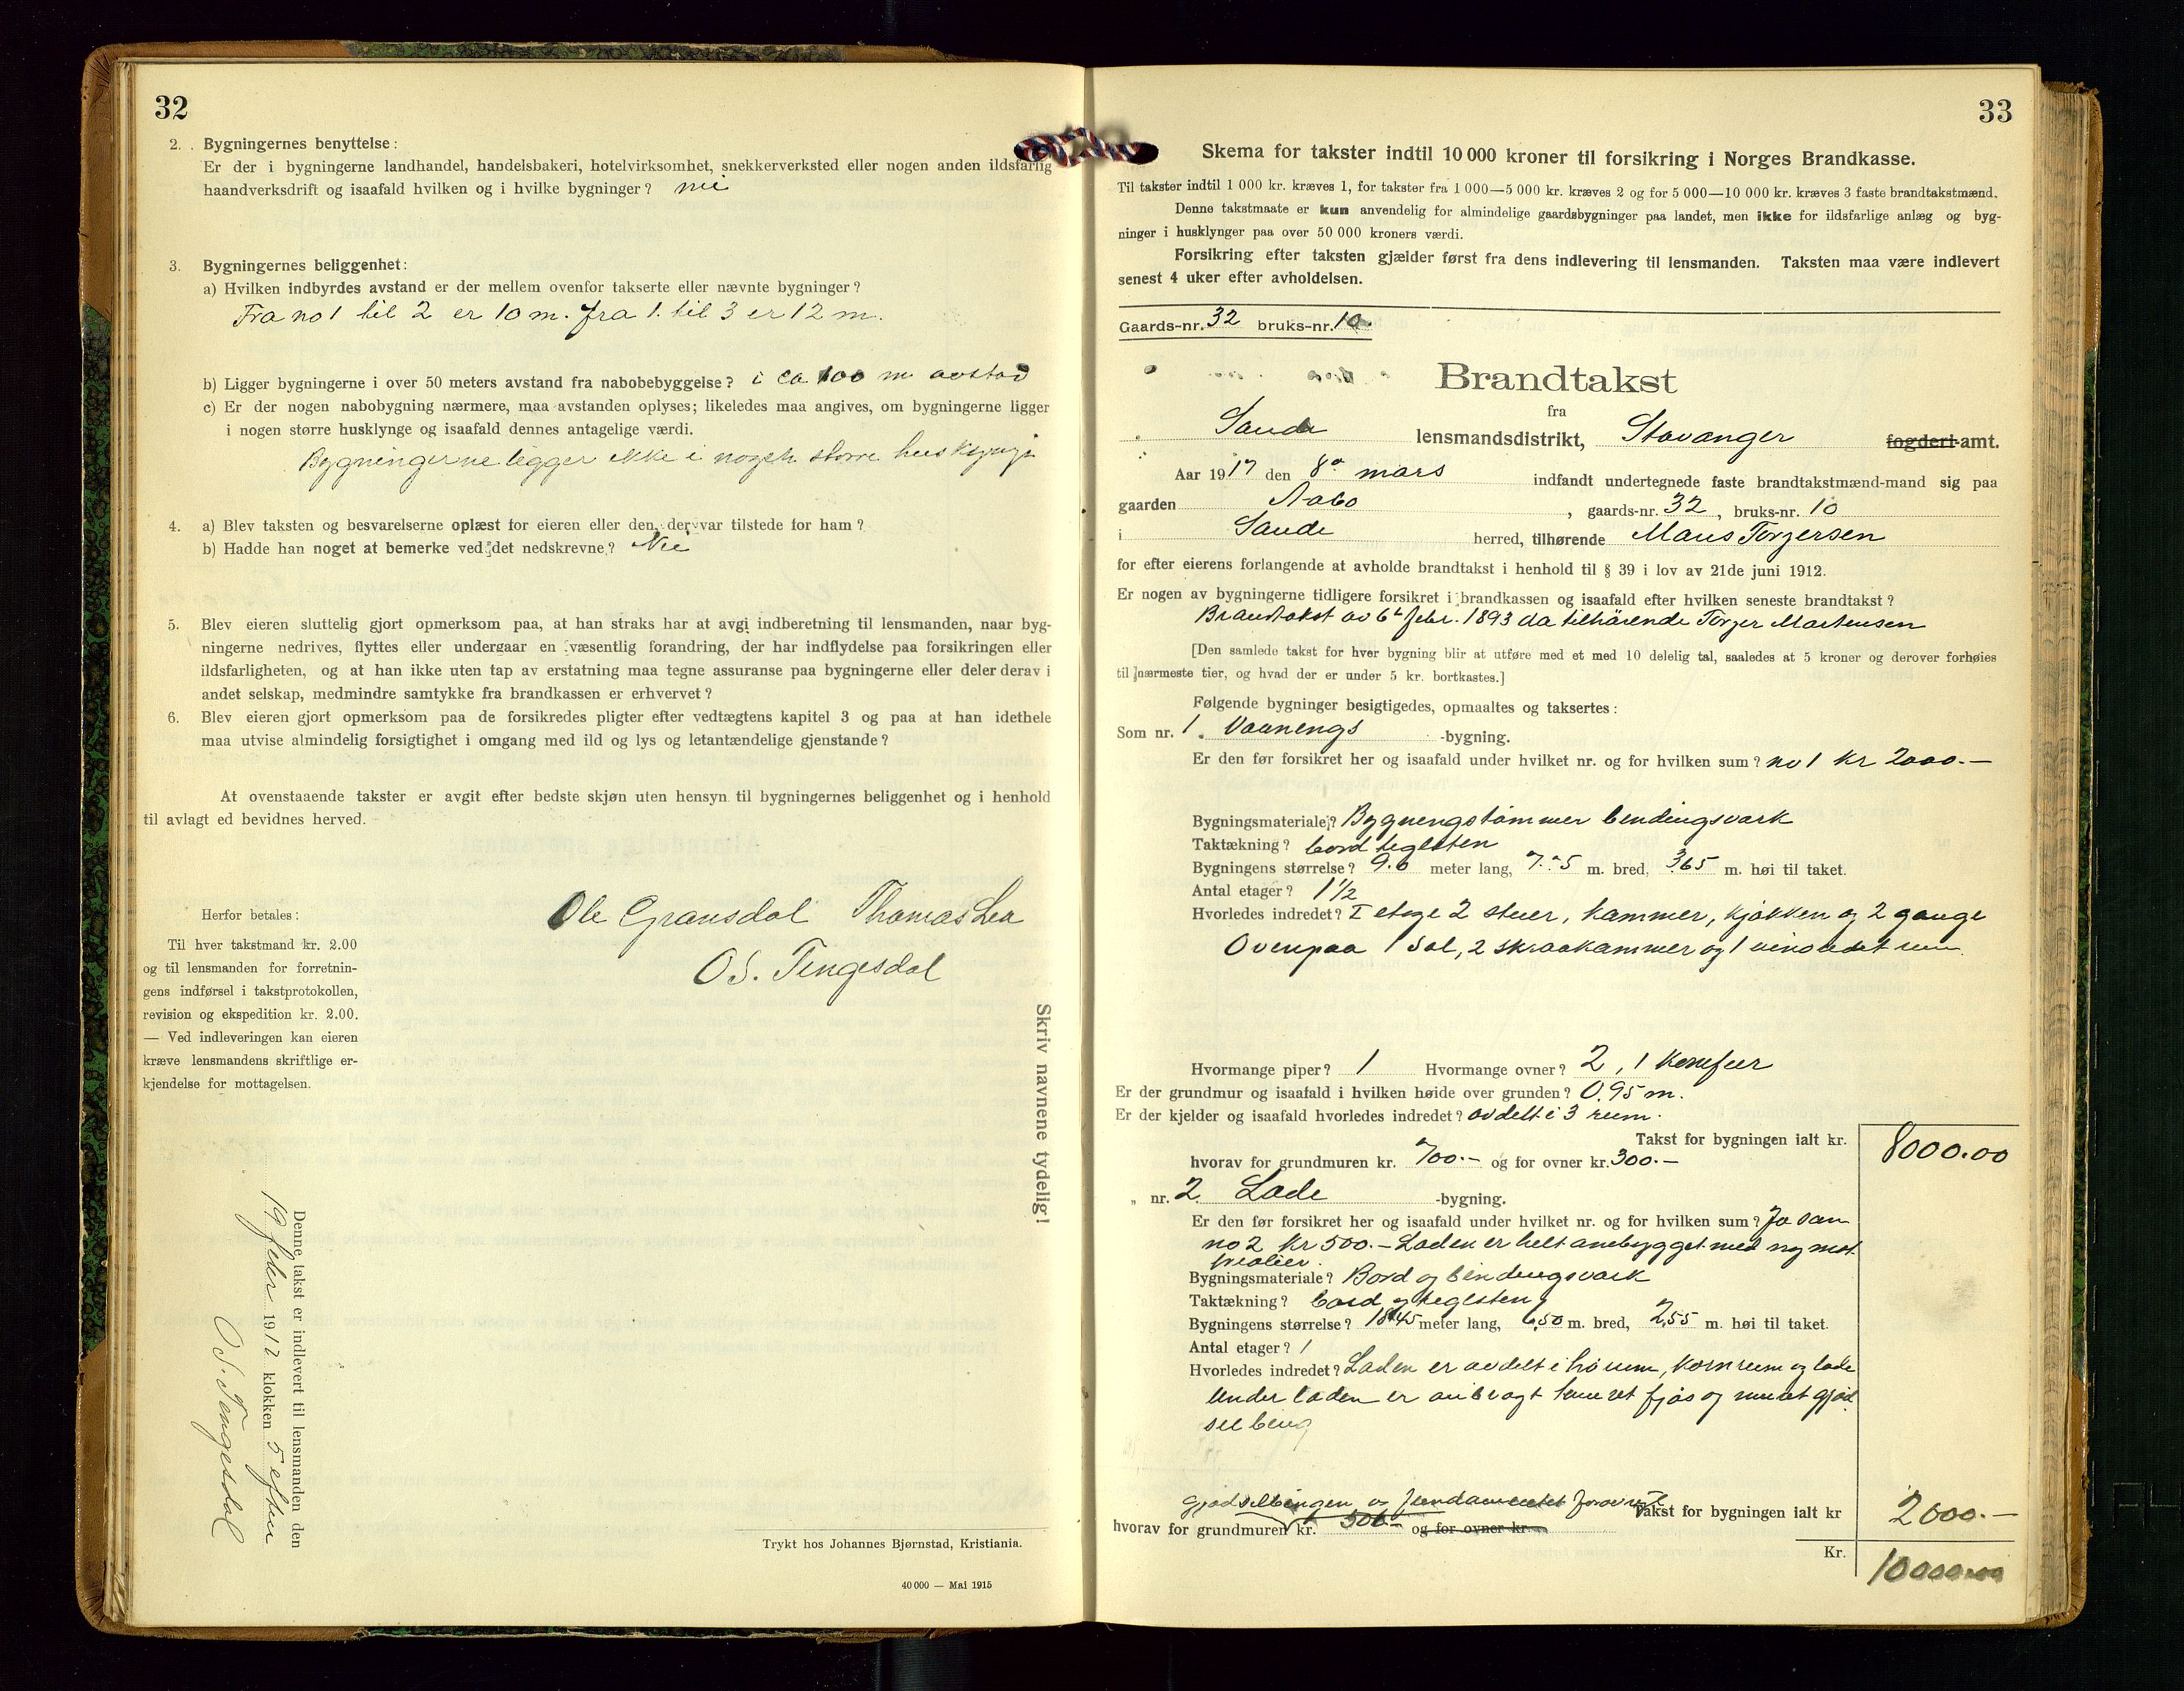 32
2. Bygningernes benyttelse:
Er der i bygningerne landhandel, handelsbakeri, hotelvirksomhet, snekkerverksted eller nogen anden ildsfarlig
haandverksdrift og isaafald hvilken og i hvilke bygninger? nei
3. Bygningernes beliggenhet:
a) Hvilken indbyrdes avstand er der mellem ovenfor takserte eller nævnte bygninger?
Fra no 1 til 2 er 10 m. fra 1. til 3 er 12 m.
b) Ligger bygningerne i over 50 meters avstand fra nabobebyggelse? i ca 100 m avstad
c) Er der nogen nabobygning nærmere, maa avstanden oplyses; likeledes maa angives, om bygningerne ligger
i nogen større husklynge og isaafald dennes antagelige værdi.
Bygningerne ligger ikke i nogen større husklynge
4. a) Blev taksten og besvarelserne oplæst for eieren eller den, der var tilstede for ham?
b) Hadde han noget at bemerke ved det nedskrevne? Nei
5. Blev eieren sluttelig gjort opmerksom paa, at han straks har at avgi indberetning til lensmanden, naar byg-
ningerne nedrives, flyttes eller undergaar en væsentlig forandring, der har indflydelse paa forsikringen eller
ildsfarligheten, og at han ikke uten tap av erstatning maa tegne assuranse paa bygningerne eller deler derav i
andet selskap, medmindre samtykke fra brandkassen er erhvervet?
6. Blev eieren gjort opmerksom paa de forsikredes pligter efter vedtægtens kapitel 3 og paa at han idethele
maa utvise almindelig forsigtighet i omgang med ild og lys og letantændelige gjenstande?
At ovenstaaende takster er avgit efter bedste skjøn uten hensyn til bygningernes beliggenhet og i henhold
til avlagt ed bevidnes herved.
Ole Gransdal Thomas Lea
O S. Tengesdal
Herfor betales:
Til hver takstmand kr. 2.00
og til lensmanden for forretnin-
gens indførsel i takstprotokollen,
revision og ekspedition kr. 2.00.
— Ved indleveringen kan eieren
kræve lensmandens skriftlige er-
kjendelse for mottagelsen.
Skriv navnene tydelig!
Denne takst er indlevert til lensmanden den
19 feber 1917 klokken 5 eften
O S. Tengesdal
Trykt hos Johannes Bjørnstad, Kristiania.
40 000 — Mai 1915
33
Skema for takster indtil 10 000 kroner til forsikring i Norges Brandkasse.
Til takster indtil 1 000 kr. kræves 1, for takster fra 1 000—5 000 kr. kræves 2 og for 5 000—10 000 kr. kræves 3 faste brandtakstmænd.
Denne takstmaate er kun anvendelig for almindelige gaardsbygninger paa landet, men ikke for ildsfarlige anlæg og byg-
ninger i husklynger paa over 50 000 kroners værdi.
Forsikring efter taksten gjælder først fra dens indlevering til lensmanden. Taksten maa være indlevert
senest 4 uker efter avholdelsen.
Gaards-nr. 32 bruks-nr. 10.
Brandtakst
fra
Sande lensmandsdistrikt, Stavanger fogderi-amt.
Aar 1917 den 8de mars indfandt undertegnede faste brandtakstmænd-mand sig paa
gaarden Aabo, gaards-nr. 32, bruks-nr. 10
i Sande herred, tilhørende Maus Torgersen
for efter eierens forlangende at avholde brandtakst i henhold til § 39 i lov av 21de juni 1912.
Er nogen av bygningerne tidligere forsikret i brandkassen og isaafald efter hvilken seneste brandtakst?
Brandtakst av 6t febr. 1893 da tilhørende Torger Martensen
[Den samlede takst for hver bygning blir at utføre med et med 10 delelig tal, saaledes at 5 kroner og derover forhøies
til nærmeste tier, og hvad der er under 5 kr. bortkastes.]
Følgende bygninger besigtigedes, opmaaltes og taksertes:
Som nr. 1. Vaanengs -bygning.
Er den før forsikret her og isaafald under hvilket nr. og for hvilken sum? no 1 kr 2000.—
Bygningsmateriale? Bygnengstømmer bendingsvark
Taktækning? bord teglsten
Bygningens størrelse? 9.0 meter lang, 7.75 m. bred, 3.65 m. høi til taket.
Antal etager? 1 1/2
Hvorledes indredet? I etage 2 stuer, kammer, kjøkken og 2 gange
Ovenpaa 1 sal, 2 skraakammer og 1 uinredet rum
Hvormange piper? 1 Hvormange ovner? 2, 1 komfeer
Er der grundmur og isaafald i hvilken høide over grunden? 0.95 m.
Er der kjelder og isaafald hvorledes indredet? avdelt i 3 rum.
Takst for bygningen ialt kr. 8000.00
hvorav for grundmuren kr. 700.— og for ovner kr. 300.—
„ nr. 2 Lade -bygning.
Er den før forsikret her og isaafald under hvilket nr. og for hvilken sum? Ja som
no 2 kr 500.— Laden er helt ombygget med ny mat
erialier.
Bygningsmateriale? Bord og bindengsvark
Taktækning? bord og teglsten
Bygningens størrelse? 18.45 meter lang, 6,50 m. bred, 2,55 m. høi til taket.
Antal etager? 1
Hvorledes indredet? Laden er avdelt i hørum, kornrum og lade
Under laden er anbragt muret fjøs og muret gjød
selbeng
gjødselbingen og fundamentet forøvrigt
Takst for bygningen ialt kr 2000.—
hvorav for grundmuren kr. 500.— og for ovner kr.
Kr. 10000.00